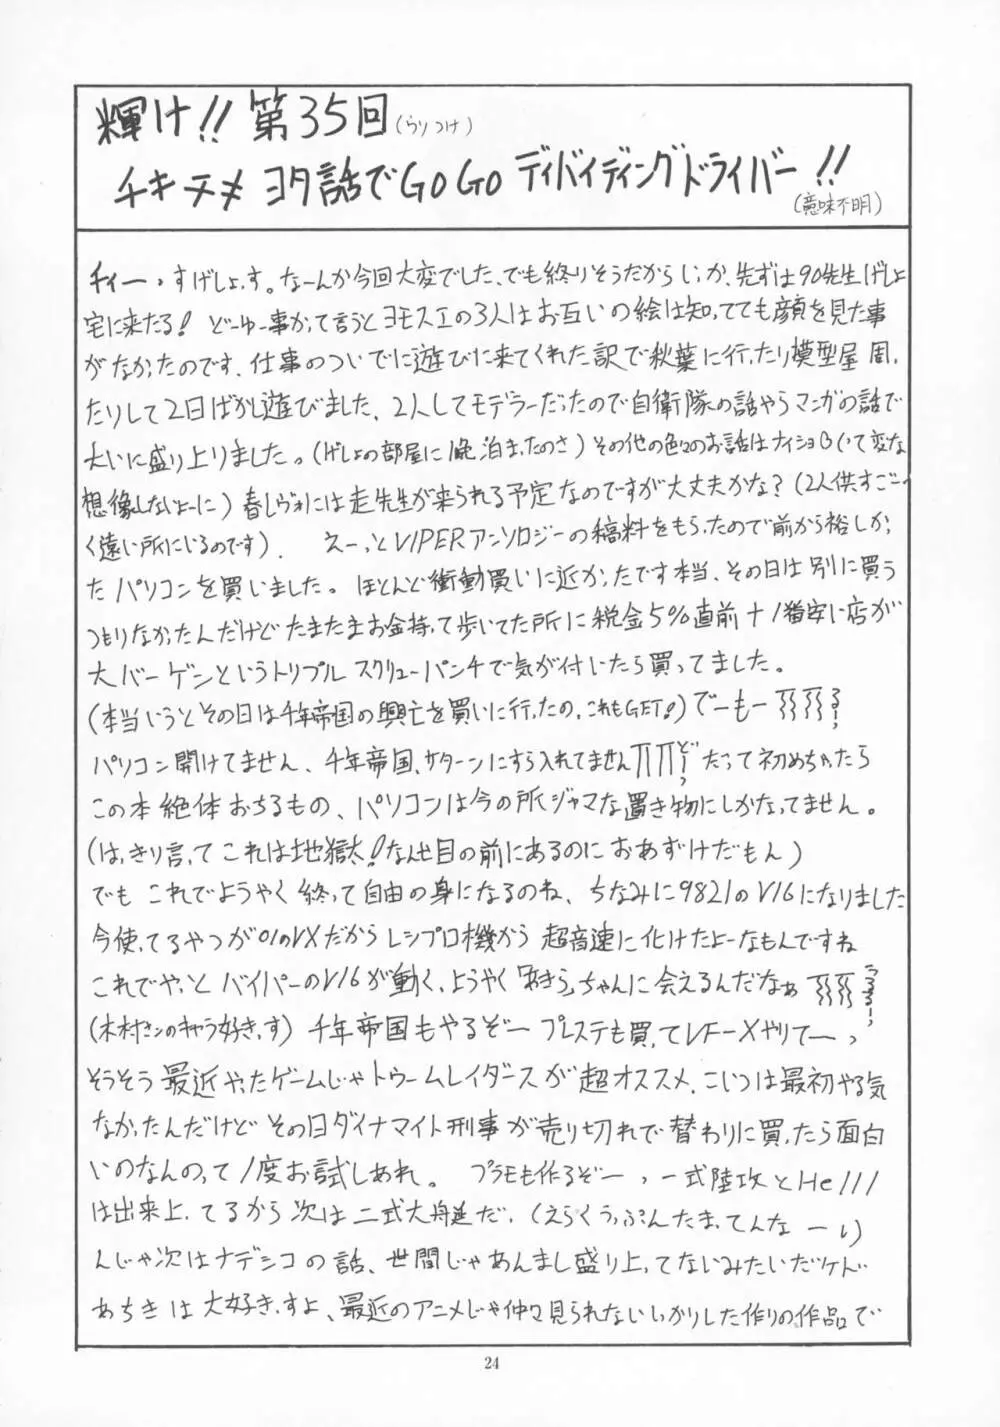 輝け!! 第35回(らりつけ)
チキチメ ヨタ話でGOGO ディバイディングドライバー!!
(意味不明)
チィーっ すげしょす。なーんか今回大変でした、でも終りそうだからしいか、先ずは90先生げしょ
宅に来たる! どーゆー事かって言うとヨモスエの3人はお互いの絵は知ってても顔を見た事
がなかったのです、仕事のついでに遊びに来てくれた訳で秋葉に行ったり模型屋 周っ
たりして2日ばかし遊びました、2人してモデラーだったので自衛隊の話やらマンガの話で
大いに盛り上りました。(げしょの部屋に1晩泊まったのさ) その他の色々のお話はナイショ(って変な
想像しないよーに) 春レヴォには走先生が来られる予定なのですが大丈夫かな? (2人供すごー
く遠い所にいるのです). えーっとVIPERアンソロジーの稿料をもらったので前から裕しかっ
たパソコンを買いました。ほとんど衝動買いに近かったです本当、その日は別に買う
つもりなかったんだけどたまたまお金持って歩いてた所に税金5%直前+1番安い店が
大バーゲンというトリプル スクリューパンチで気が付いたら買ってました。
(本当いうとその日は千年帝国の興亡を買いに行ったの、これもGET!) でーもー
パソコン開けてません、千年帝国、サターンにすら入れてません だって初めちゃったら
この本絶体おちるもの、パソコンは今の所ジャマな置き物にしかなってません。
(はっきり言ってこれは地獄だ!なんせ目の前にあるのにおあずけだもん)
でも これでようやく終って自由の身になるのね、ちなみに9821のV16になりました
今使ってるやつが01のVXだからレシプロ機から超音速に化けたよーなもんですね
これでやっとバイパーのV16が動く、ようやく「あきら」ちゃんに会えるんだなぁ
(木村さんのキャラ好きっす) 千年帝国もやるぞー プレステも買ってVF-Xやりてーっ
そうそう最近やったゲームじゃトゥームレイダースが超オススメ、こいつは最初やる気
なかったんだけどその日ダイナマイト刑事が売り切れで替わりに買ったら面白
いのなんのって1度お試しあれ。 プラモも作るぞーっ 一式陸攻とHe111
は出来上ってるから次は二式大艇だ、(えらくうっぷんたまってんなーい)
んじゃ次はナデシコの話、世間じゃあんまし盛り上ってないみたいだケド
あちきは大好きっすよ、最近のアニメじゃ仲々見られないしっかりした作りの作品で
24